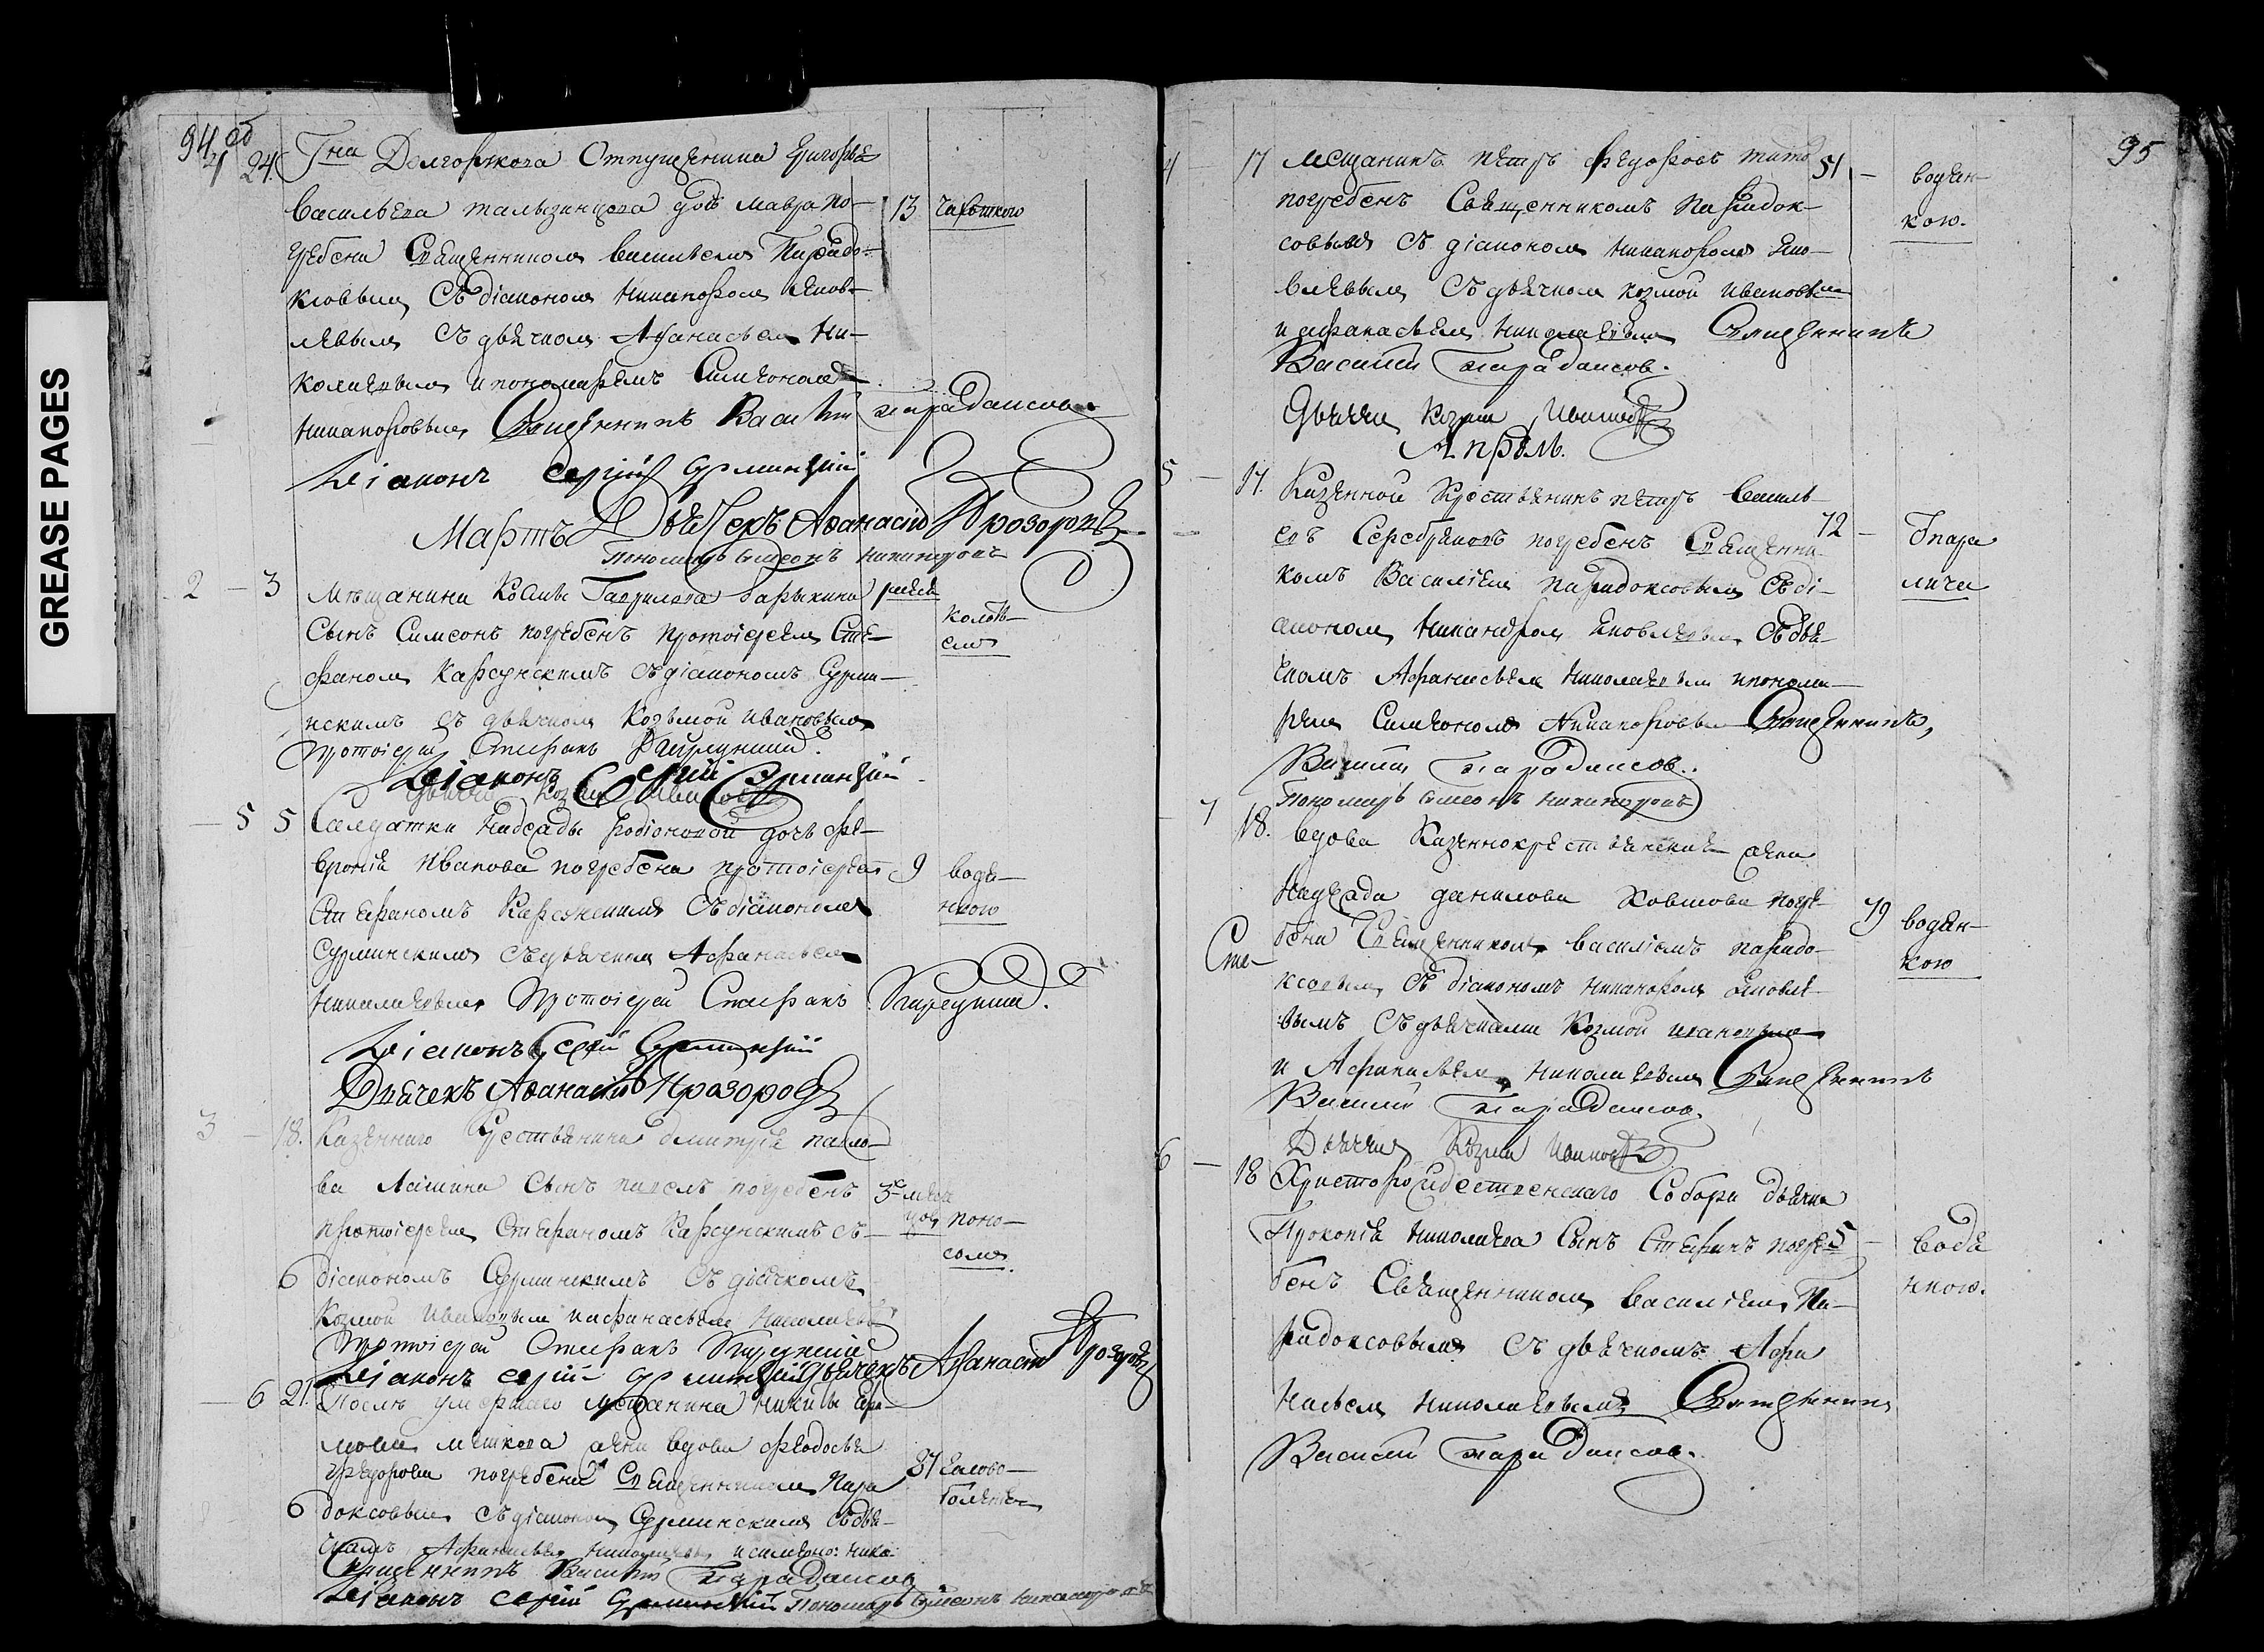 GREASE PAGES
94 об
4 24. Гна Долгорукова Отпущенника Григорья
Васильева тальзинцова дочь Мавра по-
гребена Священникомъ Васильемъ Парадо- 13 чахоткою
ксовымъ Съ діакономъ Никаноромъ Яков-
левымъ Съ дьячкомъ Афанасьемъ Ни-
колаевымъ и пономаремъ Симеономъ
Никаноровымъ Священникъ Василій Парадоксовъ
Діаконъ Сергій Сурминскій
Мартъ Дьячекъ Аѳанасій Прозоровъ
Пономарь Симеонъ Никаноровъ
2 — 3 Мещанина Космы Гаврилова
Сынъ Симеонъ погребенъ протоіереемъ Сте- колоть-
фаномъ Карсунскимъ Съ діакономъ Сурми- емъ
нскимъ съ дьячкомъ Козьмой Ивановымъ
Протоіерей Стефанъ Карсунскій.
Діаконъ Сергій Сурминскій
Дьячекъ Козма Ивановъ
— 5 5 Салдатки Надежды Родіоновой дочь Фе-
вронія Иванова погребена протоіереемъ 9 водя-
Стефаномъ Карсунскимъ Съ діакономъ нкою
Сурминскимъ Съ дьячкомъ Афанасьемъ
Николаевымъ Протоіерей Стефанъ Карсунскій.
Діаконъ Сергій Сурминскій
Дьячекъ Аѳанасій Прозоровъ
3 — 18. Казеннаго Крестьянина Дмитрія Павло-
ва Лашина Сынъ Павелъ погребенъ 3 меся
протоіереемъ Стефаномъ Карсунскимъ съ цов поно-
6 діакономъ Сурминскимъ Съ дьячкомъ сомъ.
Козмой Ивановымъ и Афанасьемъ Николаевы
Протоіерей Стефанъ Карсунскій
Діаконъ Сергій Сурминскій Дьячекъ Аѳанасій Прозоровъ
— 6 21. Послѣ умершаго мещанина Никиты
мова жена вдова Феодосья
Федорова погребена Священникомъ Пара 81
6 доксовымъ Съ діакономъ Сурминскимъ Съ дья-
чкомъ Афанасьемъ Николаевымъ и Симеоно: Ника:
Священникъ Василій Парадоксовъ
Діаконъ Сергій Сурминскій Пономарь Симеонъ Никаноровъ
95
4 — 17 Мещанинъ Петръ Федоровъ 51 — водян-
погребенъ Священникомъ Парадок- кою.
совымъ Съ діакономъ Никаноромъ Яко-
влевымъ Съ дьячкомъ Козмой Ивановымъ
и Афанасьемъ Николаевымъ Священникъ
Василій Парадоксовъ.
Дьячекъ Козма Ивановъ
Апрѣль.
5 — 17. Казенной Крестьянинъ Петръ Василь-
евъ Серебряковъ погребенъ Священни- 72 — Отпара
комъ Василіемъ Парадоксовымъ Съ ді- лича
акономъ Никаноромъ Яковлевымъ Съ дья-
чкомъ Афанасьемъ Николаевымъ и понома-
ремъ Симеономъ Никаноровымъ Священникъ,
Василій Парадоксовъ.
Пономарь Симеонъ Никаноровъ
7 18. Вдова Казеннокрестьянская жена
Надежда Данилова Ковшова погре- 79 водян-
Сте- бена Священникомъ Василіемъ Парадо- кою
ксовымъ Съ діакономъ Никаноромъ Яковле-
вымъ Съ дьячками Козмой Ивановымъ
и Афанасьемъ Николаевымъ Священникъ
Василій Парадоксовъ.
Дьячекъ Козма Ивановъ
6 — 18 Христорождественскаго Собора дьячка
Прокопія Николаева Сынъ Стефанъ погре- 5 — водя
бенъ Священникомъ Василіемъ Па- нкою.
радоксовымъ Съ дьячкомъ Афа
насьемъ Николаевымъ Священникъ
Василій Парадоксовъ.